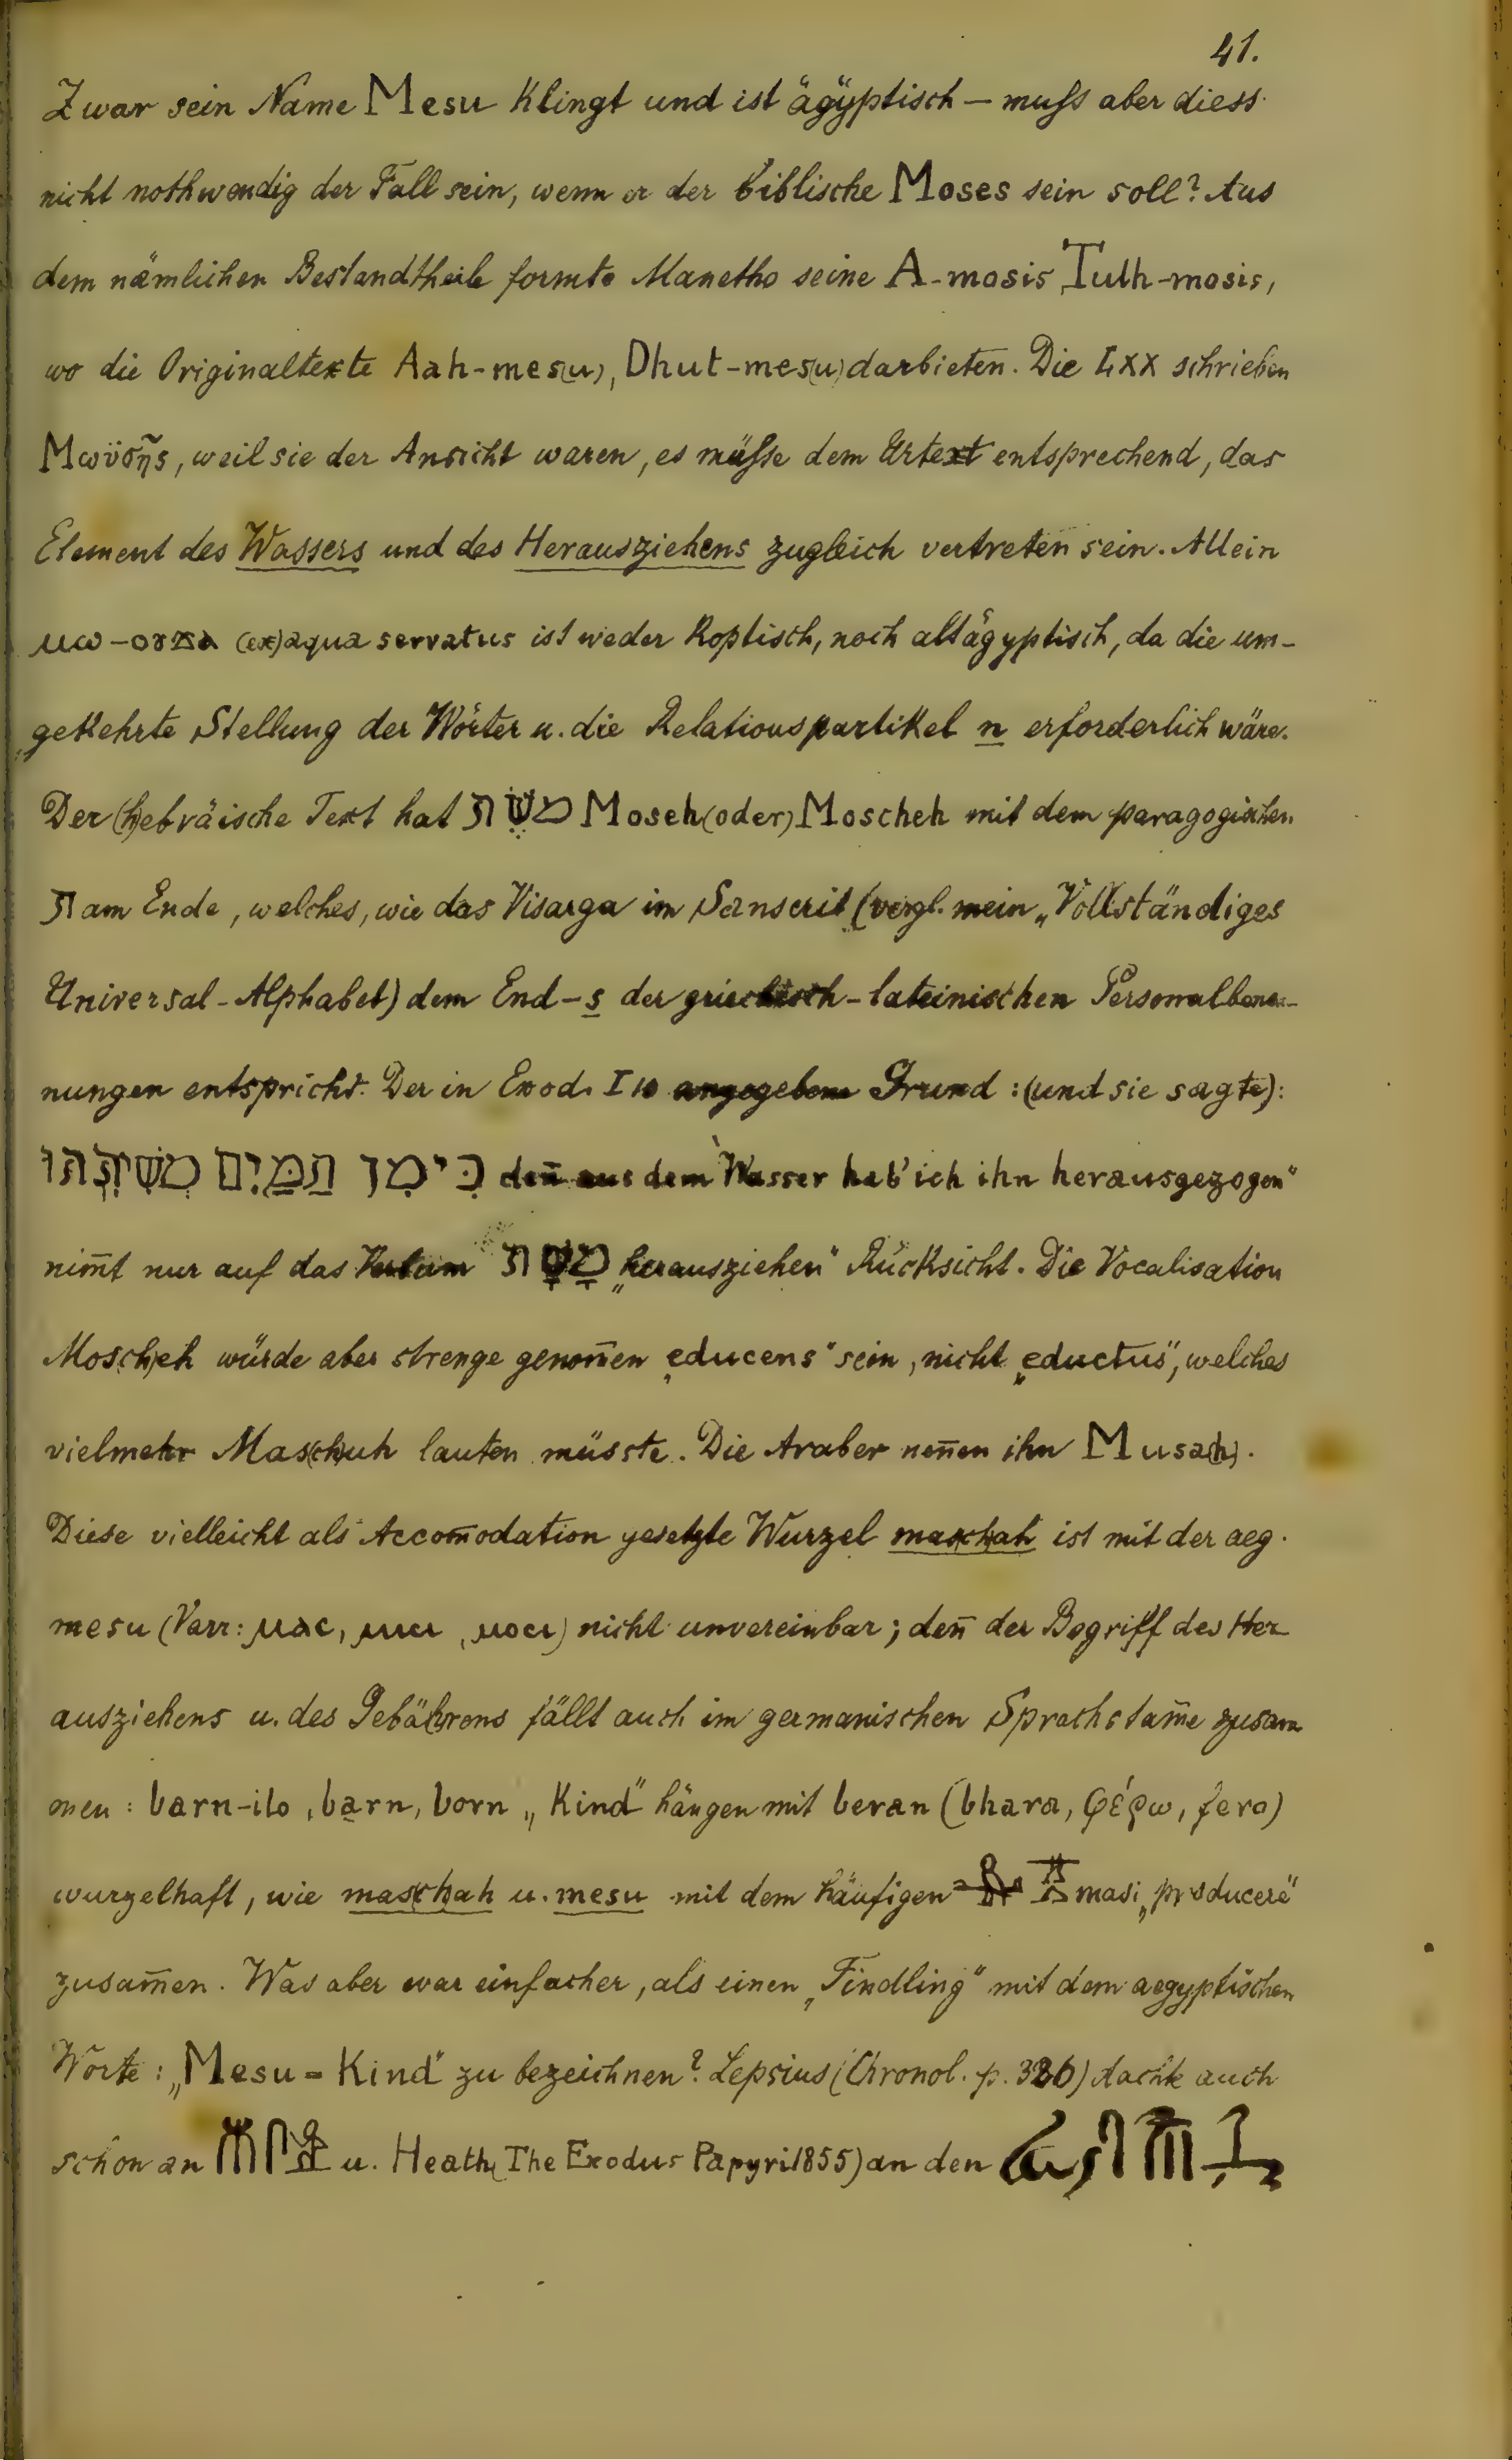 41.
Zwar sein Name Mesu klingt und ist ägyptisch — muſs aber diess
nicht nothwendig der Fall sein, wenn er der biblische Moses sein soll? Aus
dem nämlichen Bestandtheile formte Manetho seine A-mosis Tuth-mosis,
wo die Originaltexte Aah-mes(u), Dhut-mes(u) darbieten. Die LXX schrieben
Μωϋσῆς, weil sie der Ansicht waren, es müſse dem Urtext entsprechend, das
Element des Wassers und des Herausziehens zugleich vertreten sein. Allein
(ex)aqua servatus ist weder koptisch, noch altägyptisch, da die um-
gekehrte Stellung der Wörter u. die Relationspartikel n erforderlich wäre.
Der (h)ebräische Text hat מֹשֶׁה Moseh(oder)Moscheh mit dem paragogischen
ה am Ende, welches, wie das Visarga im Sanscrit (vergl. mein „Vollständiges
Universal-Alphabet) dem End-s der griechisch-lateinischen Personalbenen-
nungen entspricht. Der in Exod. angegebene Grund: (und sie sagte):
כִּי מִן הַמַּיִם מְשִׁיתִהוּ den̄ aus dem Wasser hab' ich ihn herausgezogen"
nim̄t nur auf das Verbum מָשָׁה „herausziehen" Rücksicht. Die Vocalisation
Mos(ch)eh würde aber strenge genom̄en „educens" sein, nicht „eductus", welches
vielmehr Mas(ch)uh lauten müsste. Die Araber nen̄en ihn Musa(h).
Diese vielleicht als Accom̄odation gesetzte Wurzel mas(ch)ah ist mit der aeg.
mesu (Varr: ⲙⲁⲥ, ⲙⲓⲥⲓ, ⲙⲟⲥⲓ) nicht unvereinbar; den̄ der Begriff des Her
ausziehens u. des Gebä(h)rens fällt auch im germanischen Sprachstam̄e zusam
men: barn-ilo, barn, born „Kind" hängen mit beran (bhara, φέρω, fero)
wurzelhaft, wie mas(ch)ah u. mesu mit dem häufigen masi „producere"
zusam̄en. Was aber war einfacher, als einen „Findling" mit dem aegyptischen
Worte: „Mesu = Kind" zu bezeichnen? Lepsius (Chronol. p. ) dachte auch
schon an 𓄟𓋴 u. Heath (The Exodus Papyri 1855) an den